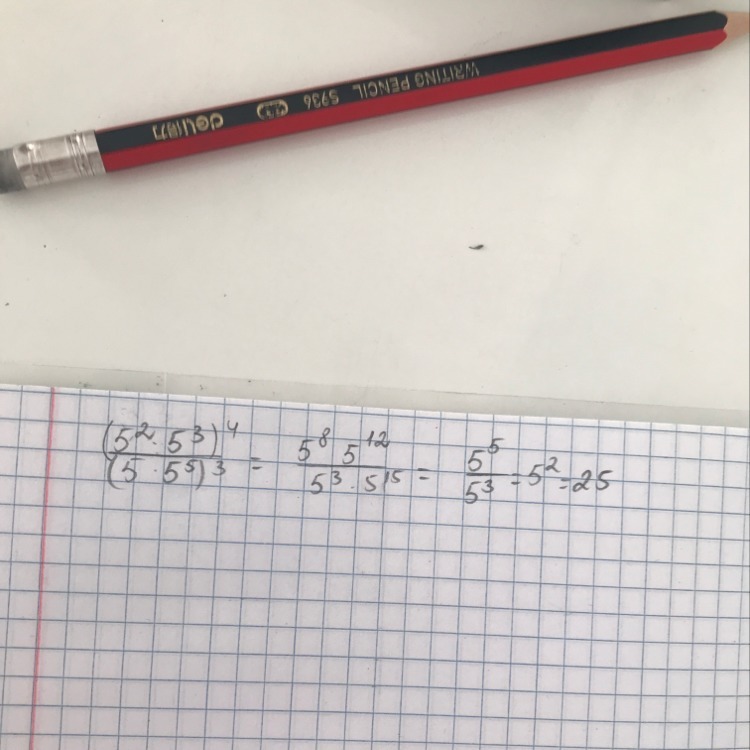 deli得力 WRITING PENCIL S936
(5² · 5³)⁴ / (5 · 5⁵)³ = 5⁸ 5¹² / 5³ · 5¹⁵ = 5⁵ / 5³ = 5² = 25